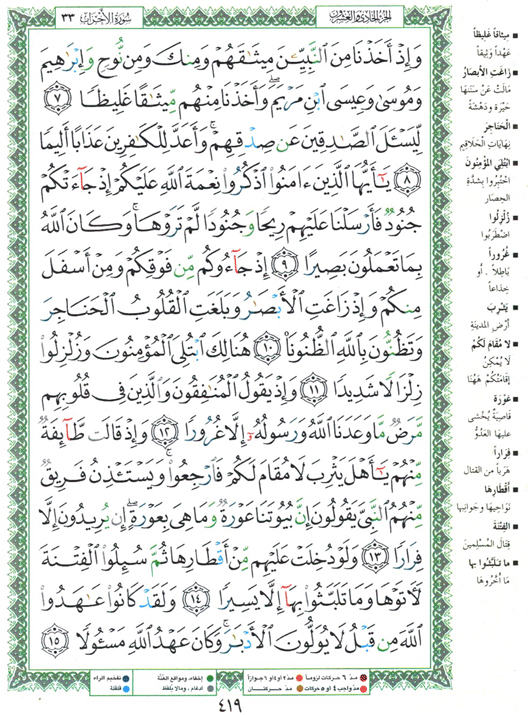 سُورَةُ الأَحْزَابِ ٣٣
الجُزءُ الحَادِي وَالعِشْرُون
وَإِذْ أَخَذْنَا مِنَ ٱلنَّبِيِّـۧنَ مِيثَٰقَهُمْ وَمِنكَ وَمِن نُّوحٍ وَإِبْرَٰهِيمَ
وَمُوسَىٰ وَعِيسَى ٱبْنِ مَرْيَمَ ۖ وَأَخَذْنَا مِنْهُم مِّيثَٰقًا غَلِيظًا ٧
لِّيَسْـَٔلَ ٱلصَّٰدِقِينَ عَن صِدْقِهِمْ ۚ وَأَعَدَّ لِلْكَٰفِرِينَ عَذَابًا أَلِيمًا
٨ يَٰٓأَيُّهَا ٱلَّذِينَ ءَامَنُوا۟ ٱذْكُرُوا۟ نِعْمَةَ ٱللَّهِ عَلَيْكُمْ إِذْ جَآءَتْكُمْ
جُنُودٌ فَأَرْسَلْنَا عَلَيْهِمْ رِيحًا وَجُنُودًا لَّمْ تَرَوْهَا ۚ وَكَانَ ٱللَّهُ
بِمَا تَعْمَلُونَ بَصِيرًا ٩ إِذْ جَآءُوكُم مِّن فَوْقِكُمْ وَمِنْ أَسْفَلَ
مِنكُمْ وَإِذْ زَاغَتِ ٱلْأَبْصَٰرُ وَبَلَغَتِ ٱلْقُلُوبُ ٱلْحَنَاجِرَ
وَتَظُنُّونَ بِٱللَّهِ ٱلظُّنُونَا۠ ١٠ هُنَالِكَ ٱبْتُلِىَ ٱلْمُؤْمِنُونَ وَزُلْزِلُوا۟
زِلْزَالًا شَدِيدًا ١١ وَإِذْ يَقُولُ ٱلْمُنَٰفِقُونَ وَٱلَّذِينَ فِى قُلُوبِهِم
مَّرَضٌ مَّا وَعَدَنَا ٱللَّهُ وَرَسُولُهُۥٓ إِلَّا غُرُورًا ١٢ وَإِذْ قَالَت طَّآئِفَةٌ
مِّنْهُمْ يَٰٓأَهْلَ يَثْرِبَ لَا مُقَامَ لَكُمْ فَٱرْجِعُوا۟ ۚ وَيَسْتَـْٔذِنُ فَرِيقٌ
مِّنْهُمُ ٱلنَّبِىَّ يَقُولُونَ إِنَّ بُيُوتَنَا عَوْرَةٌ وَمَا هِىَ بِعَوْرَةٍ ۖ إِن يُرِيدُونَ إِلَّا
فِرَارًا ١٣ وَلَوْ دُخِلَتْ عَلَيْهِم مِّنْ أَقْطَارِهَا ثُمَّ سُئِلُوا۟ ٱلْفِتْنَةَ
لَءَاتَوْهَا وَمَا تَلَبَّثُوا۟ بِهَآ إِلَّا يَسِيرًا ١٤ وَلَقَدْ كَانُوا۟ عَٰهَدُوا۟
ٱللَّهَ مِن قَبْلُ لَا يُوَلُّونَ ٱلْأَدْبَٰرَ ۚ وَكَانَ عَهْدُ ٱللَّهِ مَسْـُٔولًا ١٥
ميثاقاً غليظاً
عَهْداً وَثِيقاً
زَاغَتِ الأَبْصَارُ
مَالَتْ عَنْ سَنَنِهَا
حَيْرَةً وَدَهْشَةً
الْحَنَاجِرَ
نِهَايَاتِ الْحَلَاقِيمِ
ابْتُلِيَ الْمُؤْمِنُونَ
اخْتُبِرُوا بِشِدَّةِ
الحِصَارِ
زُلْزِلُوا
اضْطَرَبُوا
غُرُوراً
بَاطِلاً . أو
خِدَاعاً
يَثْرِبَ
أَرْضِ المَدِينَةِ
لَا مُقَامَ لَكُمْ
لَا يُمْكِنُ
إِقَامَتُكُمْ هَهُنَا
عَوْرَةٌ
قَاصِيَةٌ يُخْشَى
عَلَيْهَا العَدُوُّ
فِرَاراً
هَرَباً مِنَ القِتَالِ
أَقْطَارِهَا
نَوَاحِيهَا وَجَوَانِبِهَا
الفِتْنَةَ
قِتَالَ المُسْلِمِينَ
مَا تَلَبَّثُوا بِهَا
مَا أَخَّرُوهَا
مدّ ٦ حركات لزوماً
مدّ ٢ أو ٤ أو ٦ جوازاً
إخفاء، ومواقع الغُنَّة
تفخيم الراء
مدّ واجب ٤ أو ٥ حركات
مدّ حركتان
ادغام، ومالا يُلفَظ
قلقلة
٤١٩